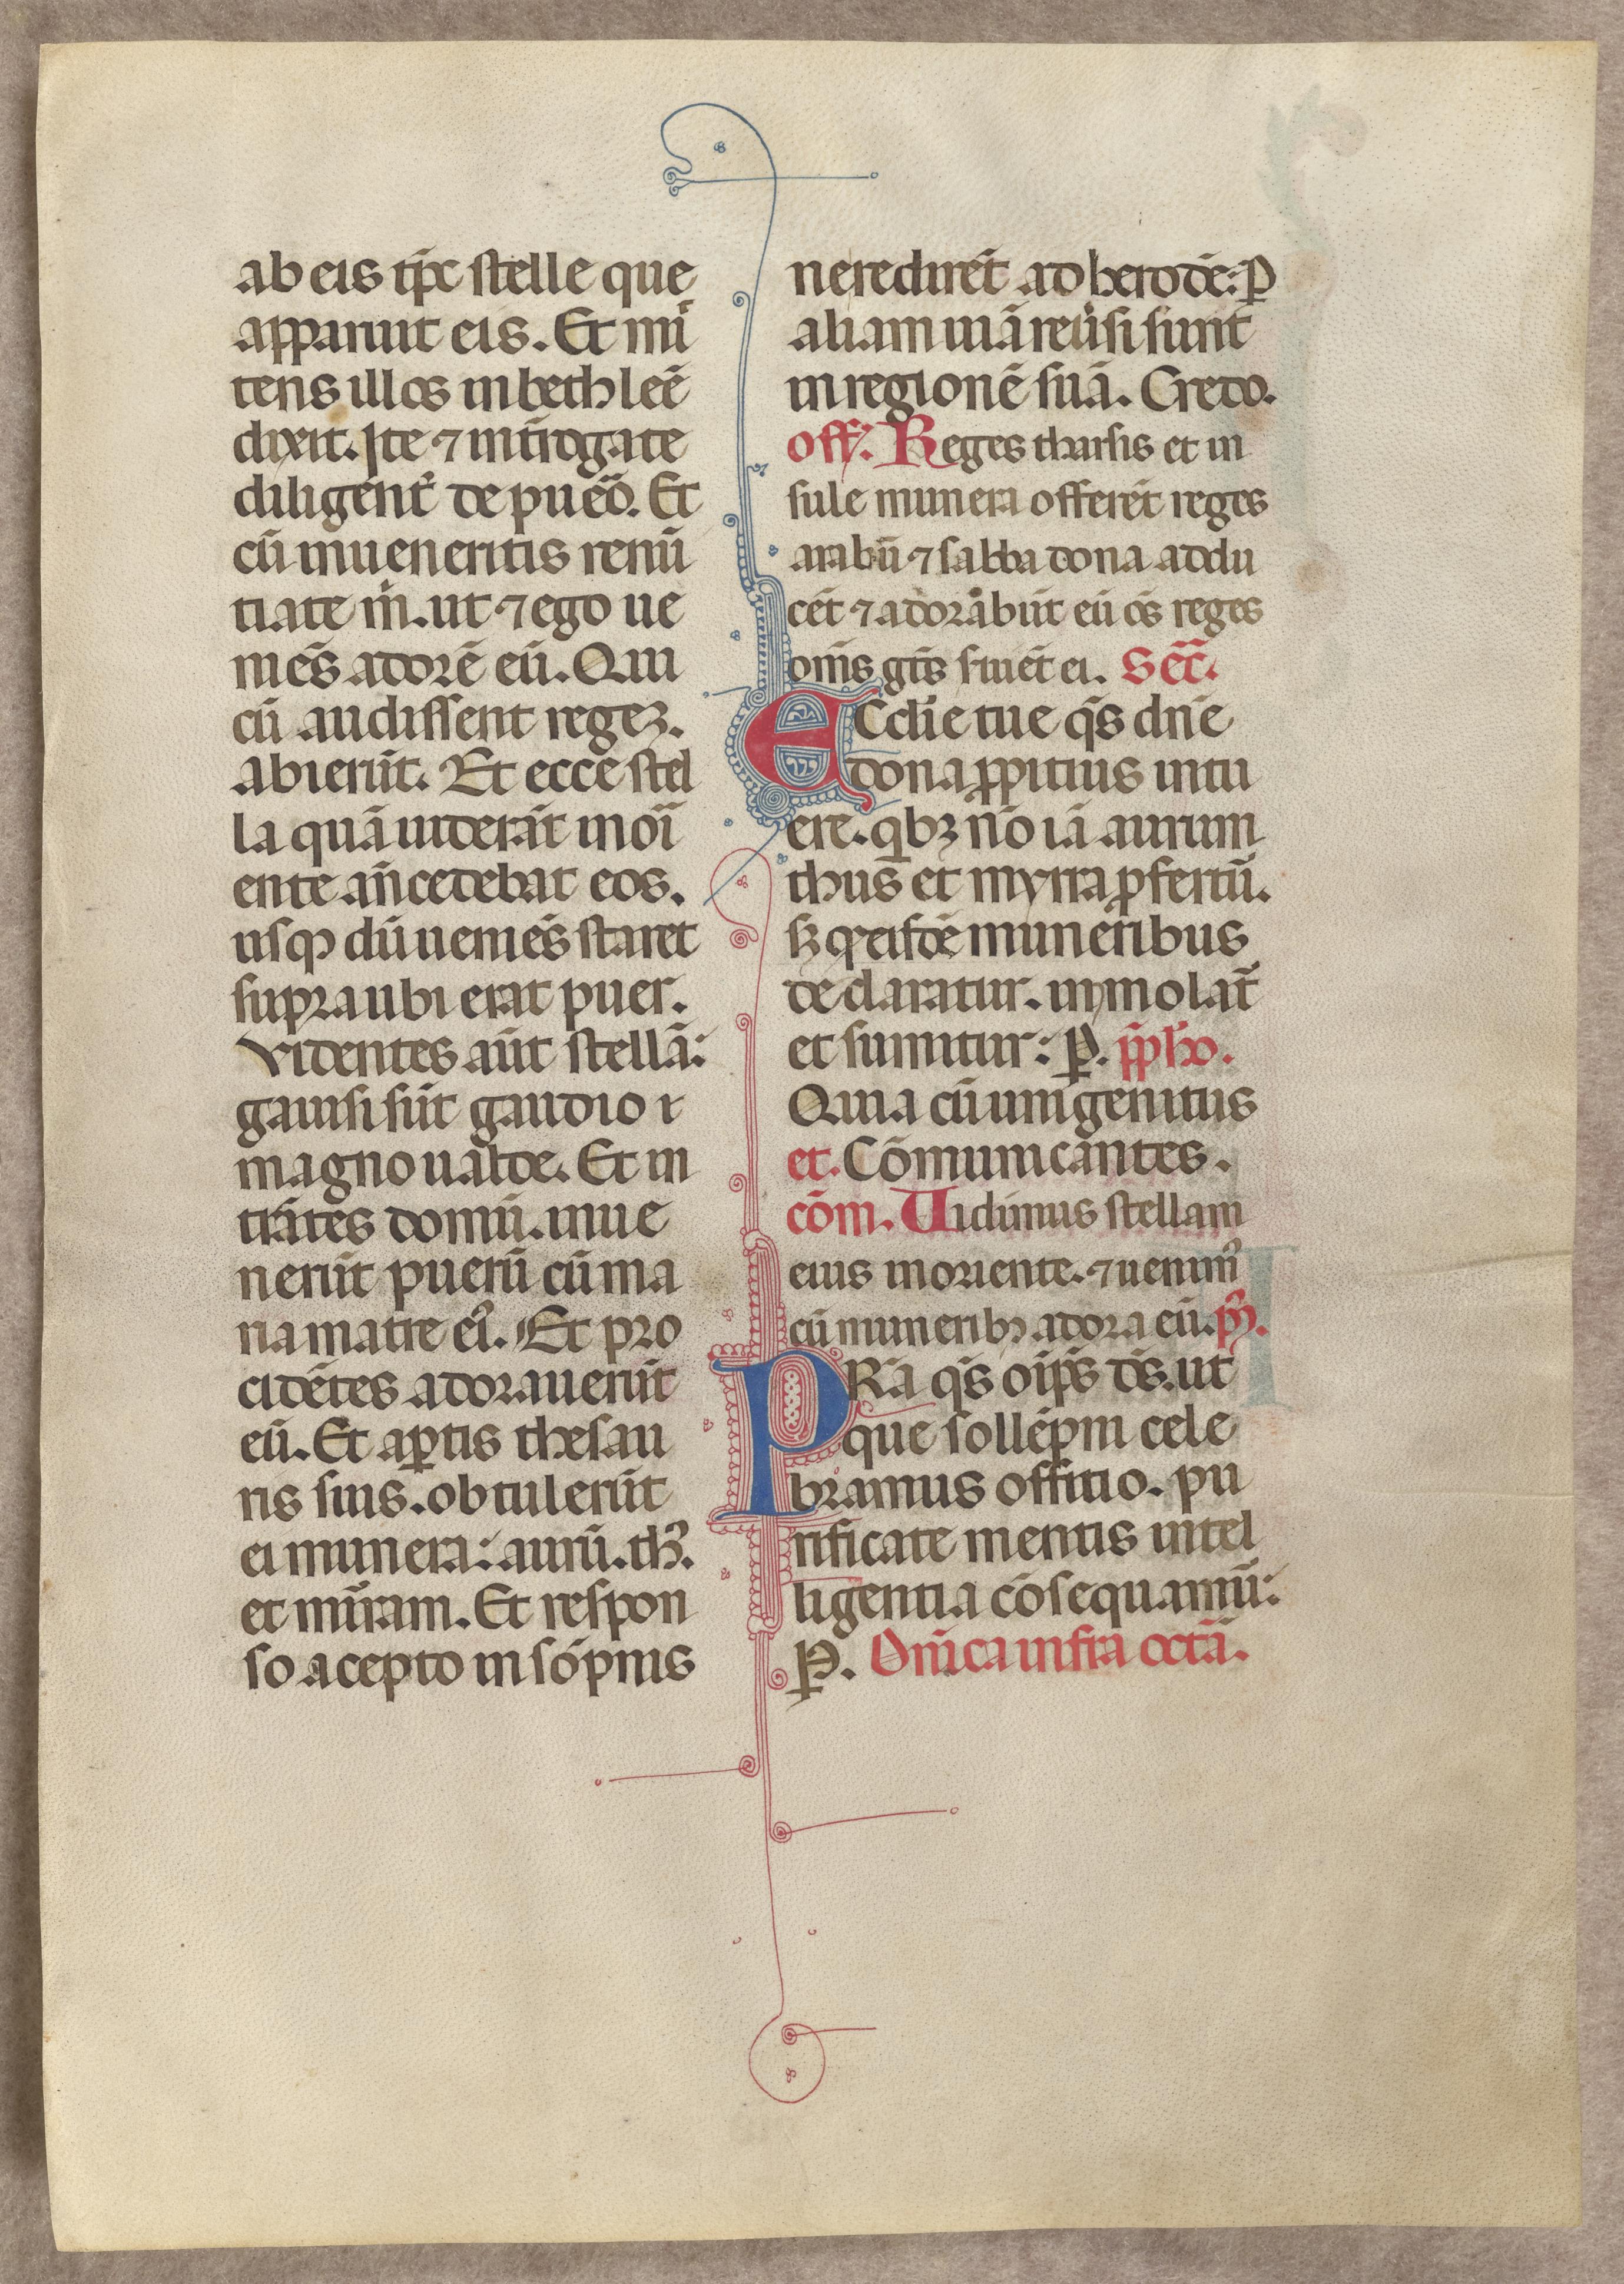 ab eis tp̄c stelle que
apparuit eis. Et mi
tens illos in bethleē
dixit. Ite ⁊ int̄rogate
diligent᷑ de pueō. Et
cū inueneritis renū
tiate m̄. ut ⁊ ego ue
niēs adorē eū. Qui
cū audissent regeꝫ.
abierūt. Et ecce stel
la quā uiderāt in ori
ente añcedebat eos.
usqꝫ dū ueniēs staret
supra ubi erat puer.
Videntes aūt stellā:
gauisi sūt gaudio
magno ualde. Et in
trātes domū. inue
nerūt puerū cū ma
ria matre ei᷒. Et pro
cidētes adorauerūt
eū. Et aꝑtis thesau
ris suis. obtulerūt
ei munera: aurū. th᷒.
et mirram. Et respon
so acepto in sōpnis
ne redirēt ad herodē: ꝑ
aliam uiā reu̔si sunt
in regionē suā. Credo.
off. Reges tharsis et in
sule munera offerēt reges
arabū ⁊ sabba dona addu
cēt ⁊ adorabūt eū oēs reges
om̄s gētes s̄uiēt ei. Sec̄.
ECclīe tue q̄s dn̄e
dona ꝓpitius intu
ere. qͥbꝫ nō iā aurum
thus et myrra ꝓfertū.
sꝫ qͩ eisdē muneribus
declaratur. immolat᷑
et sumitur: P̱. p̄pħo.
Quia cū unigenitus
et. Cōmunicantes.
cōm. Uidimus stellam
eius in oriente. ⁊ uenim᷒
cū muneribꝫ adora eū. p᷒.
PRa q̄s oīps ds̄. ut
que sollēpni cele
bramus offitio. pu
rificate mentis intel
ligentia cōsequamu᷑:
P̱. Dn̄ica infra octā.